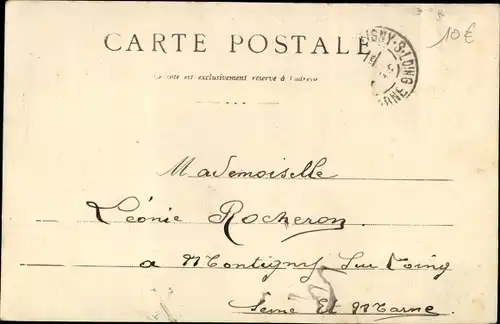 10€
CARTE POSTALE
Ce côté est exclusivement réservé à l'adresse
IGNY-S-LOING
Mademoiselle
Léonie Rocheron
a Montigny Sur Loing
Seine Et Marne